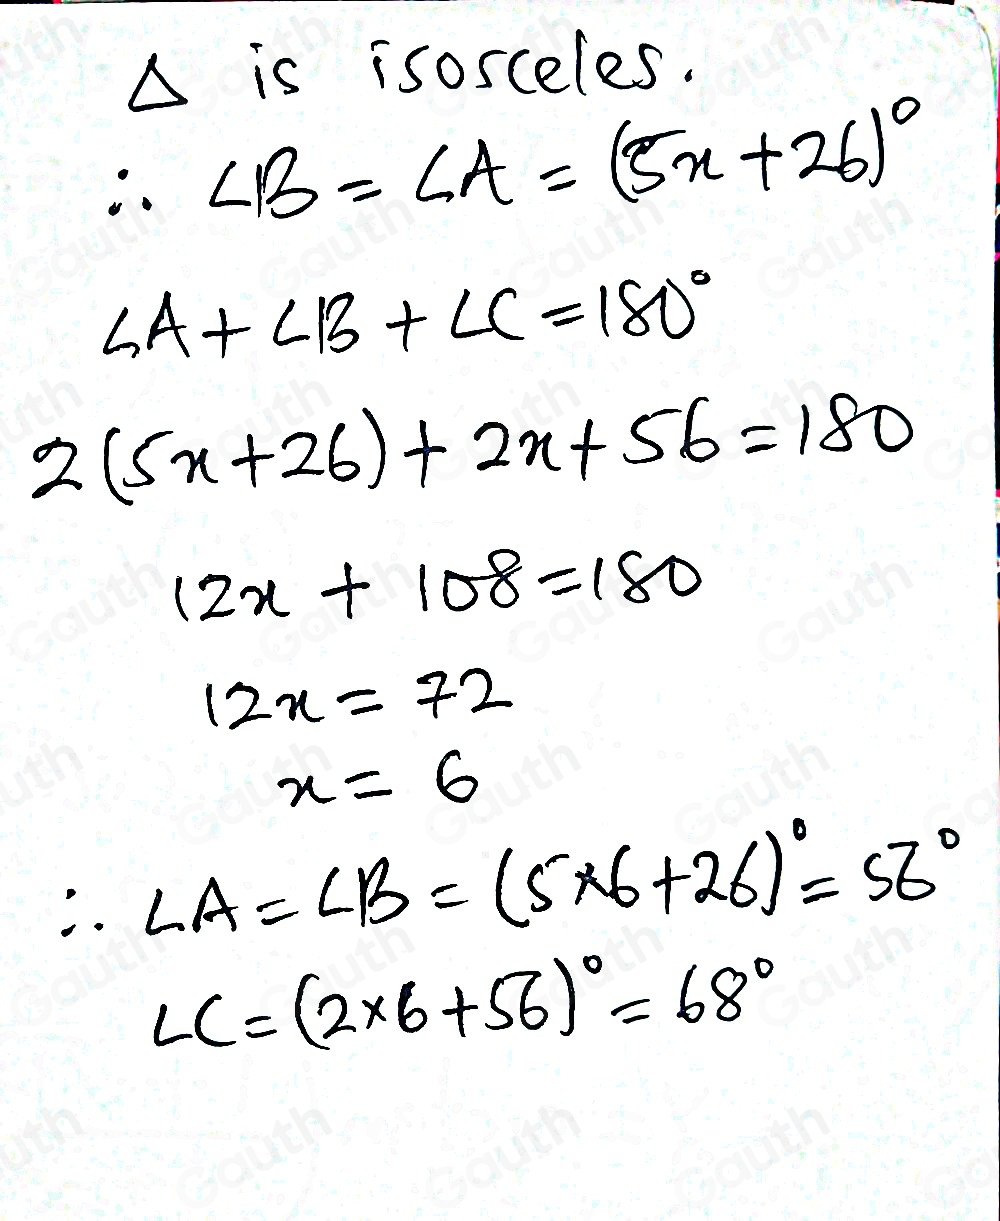 △ is isosceles.
∴ ∠B = ∠A = (5x + 26)°
∠A + ∠B + ∠C = 180°
2(5x + 26) + 2x + 56 = 180
12x + 108 = 180
12x = 72
x = 6
∴ ∠A = ∠B = (5×6 + 26)° = 56°
∠C = (2×6 + 56)° = 68°